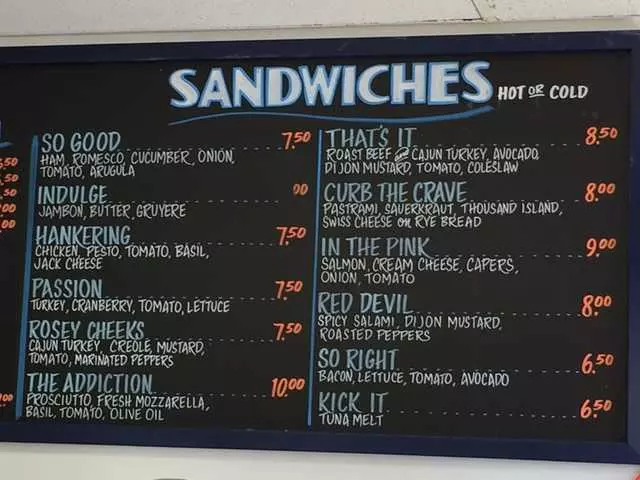 SANDWICHES HOT OR COLD
SO GOOD 7.50
HAM, ROMESCO, CUCUMBER, ONION,
TOMATO, ARUGULA
INDULGE 00
JAMBON, BUTTER, GRUYERE
HANKERING 7.50
CHICKEN, PESTO, TOMATO, BASIL,
JACK CHEESE
PASSION 7.50
TURKEY, CRANBERRY, TOMATO, LETTUCE
ROSEY CHEEKS 7.50
CAJUN TURKEY, CREOLE, MUSTARD,
TOMATO, MARINATED PEPPERS
THE ADDICTION 10.00
PROSCIUTTO, FRESH MOZZARELLA,
BASIL, TOMATO, OLIVE OIL
THAT'S IT 8.50
ROAST BEEF and CAJUN TURKEY, AVOCADO,
DIJON MUSTARD, TOMATO, COLESLAW
CURB THE CRAVE 8.00
PASTRAMI, SAUERKRAUT, THOUSAND ISLAND,
SWISS CHEESE on RYE BREAD
IN THE PINK 9.00
SALMON, CREAM CHEESE, CAPERS,
ONION, TOMATO
RED DEVIL 8.00
SPICY SALAMI, DIJON MUSTARD,
ROASTED PEPPERS
SO RIGHT 6.50
BACON, LETTUCE, TOMATO, AVOCADO
KICK IT 6.50
TUNA MELT